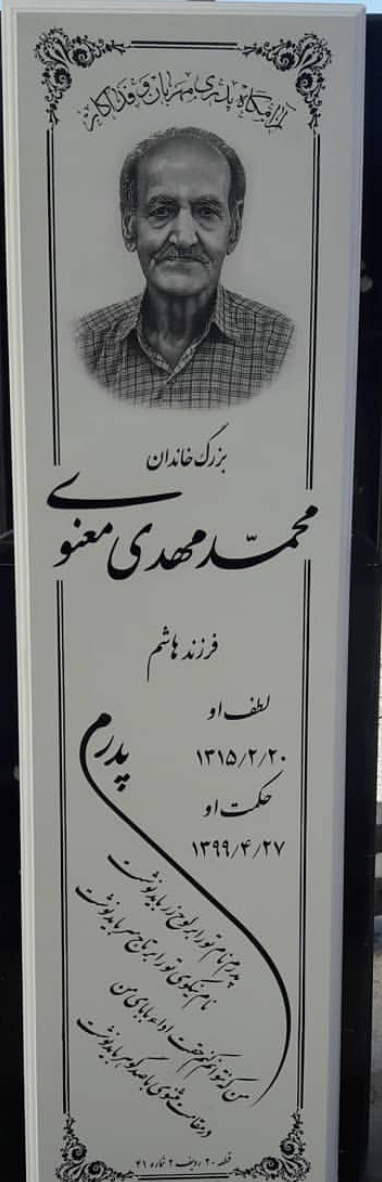 آرامگاه پدری مهربان و فداکار
بزرگ خاندان
محمّد مهدی معنوی
فرزند هاشم
لطف او
۱۳۱۵/۲/۲۰
حکمت او
۱۳۹۹/۴/۲۷
پدرم
پدرم نام تو را بر لوح زر باید نوشت
نام نیکوی تو را بر تاج سر باید نوشت
من که نتوانم کنم حقت ادا بابای من
در مقامت مثنوی با صد گوهر باید نوشت
قطعه ۲۰ ردیف ۲ شماره ۴۱